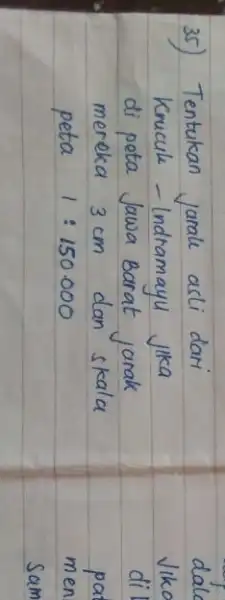 35) Tentukan jarak asli dari
Krucuk - Indramayu jika
di peta Jawa Barat jarak
mereka 3 cm dan skala
peta 1 : 150.000
dala
Jika
di
pat
men
sam